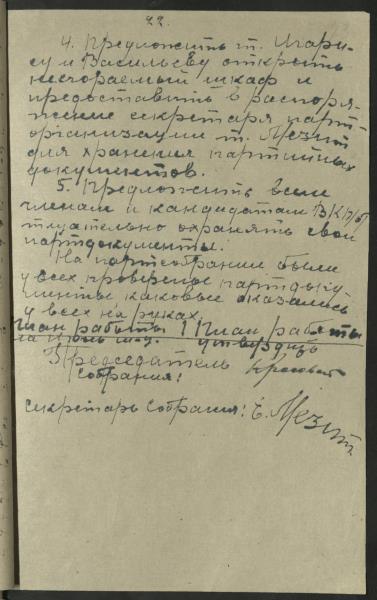 22.
4. Предложить т.т. Игари-
су и Васильеву открыть
несгораемый шкаф и
предоставить в распоря-
жение секретаря парт-
организации т. Мезит
для хранения партийных
документов.
5. Предложить всем
членам и кандидатам ВКП/б/
тщательно охранять свои
партдокументы.
На партсобрании были
у всех проверены партдоку
менты каковые оказались
у всех на руках.
План работы | План работы
на июль м-ц. утвердить
Председатель
собрания:
секретарь собрания: Е. Мезит